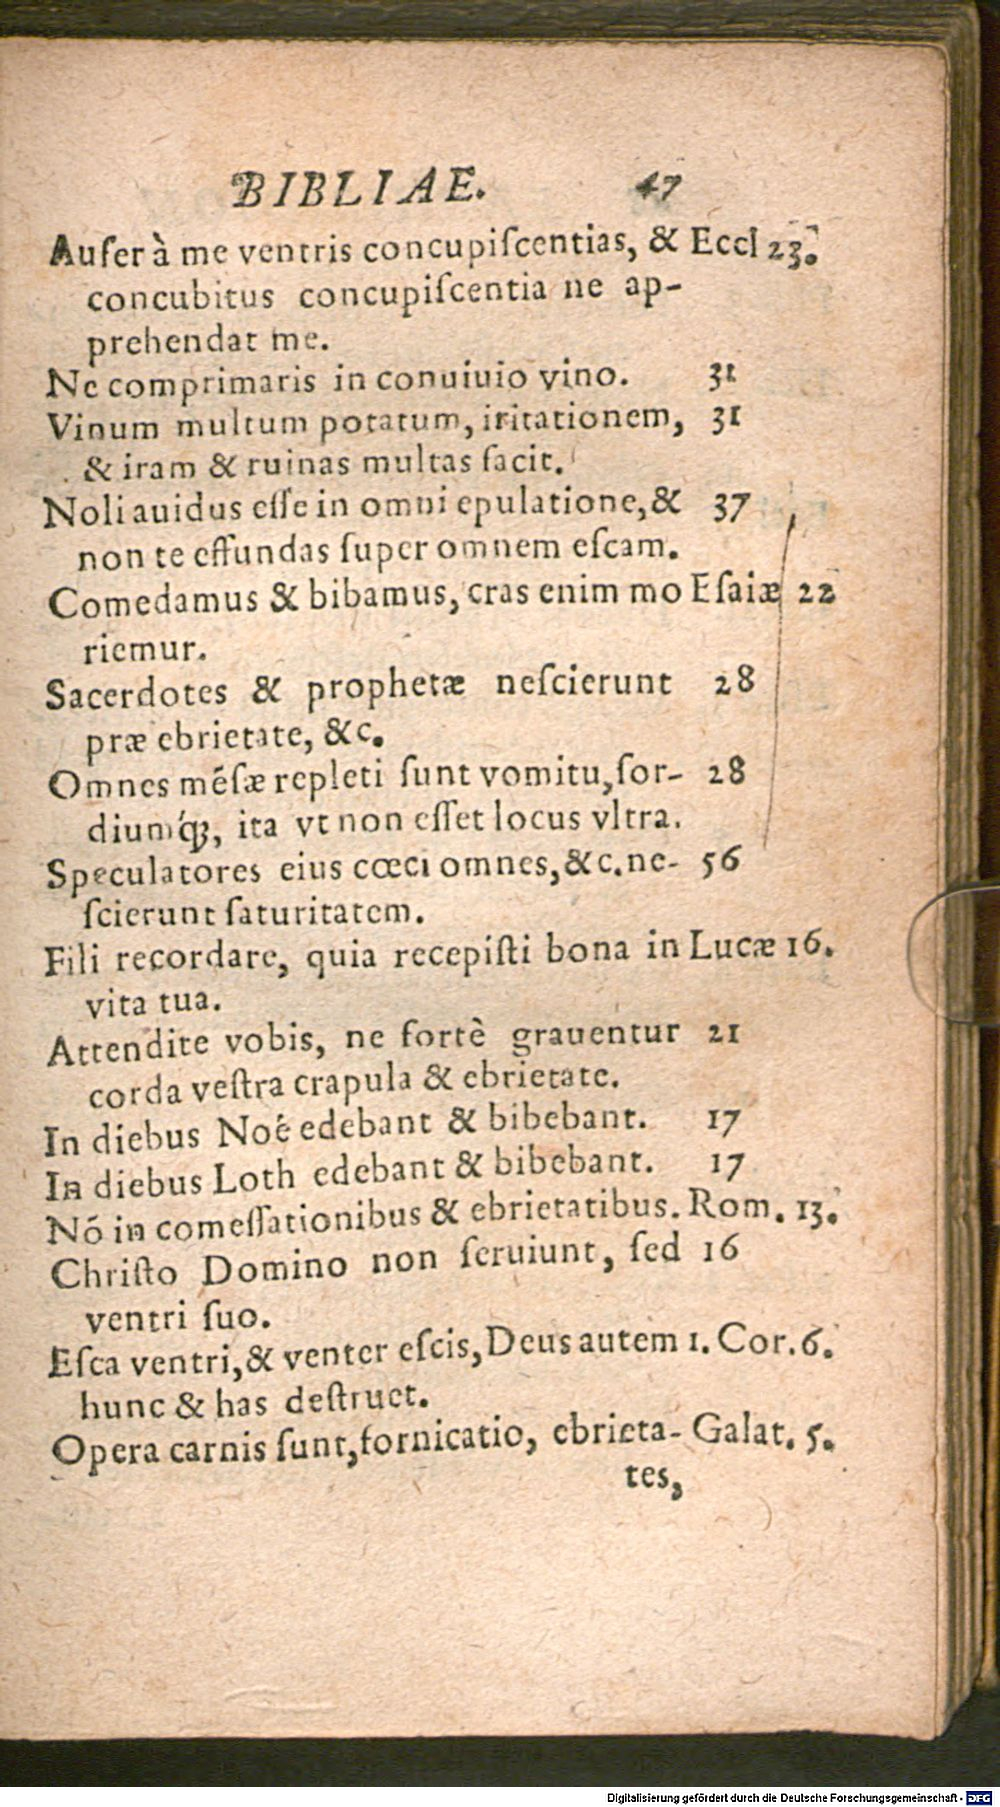 BIBLIAE. 47
Aufer à me ventris concupiſcentias, & Eccl 23.
concubitus concupiſcentia ne ap-
prehendat me.
Ne comprimaris in conuiuio vino. 31
Vinum multum potatum, iritationem, 31
& iram & ruinas multas facit.
Noli auidus eſſe in omni epulatione, & 37
non te effundas ſuper omnem eſcam.
Comedamus & bibamus, cras enim mo Eſaiæ 22
riemur.
Sacerdotes & prophetæ neſcierunt 28
præ ebrietate, &c.
Omnes mēſæ repleti ſunt vomitu, ſor- 28
diumq́ꝫ, ita vt non eſſet locus vltra.
Speculatores eius cœci omnes, &c. ne- 56
ſcierunt ſaturitatem.
Fili recordare, quia recepiſti bona in Lucæ 16.
vita tua.
Attendite vobis, ne fortè grauentur 21
corda veſtra crapula & ebrietate.
In diebus Noé edebant & bibebant. 17
In diebus Loth edebant & bibebant. 17
Nō in comeſſationibus & ebrietatibus. Rom. 13.
Chriſto Domino non ſeruiunt, ſed 16
ventri ſuo.
Eſca ventri, & venter eſcis, Deus autem 1. Cor. 6.
hunc & has deſtruet.
Opera carnis ſunt, fornicatio, ebrieta- Galat. 5.
tes,
Digitalisierung gefördert durch die Deutsche Forschungsgemeinschaft - DFG